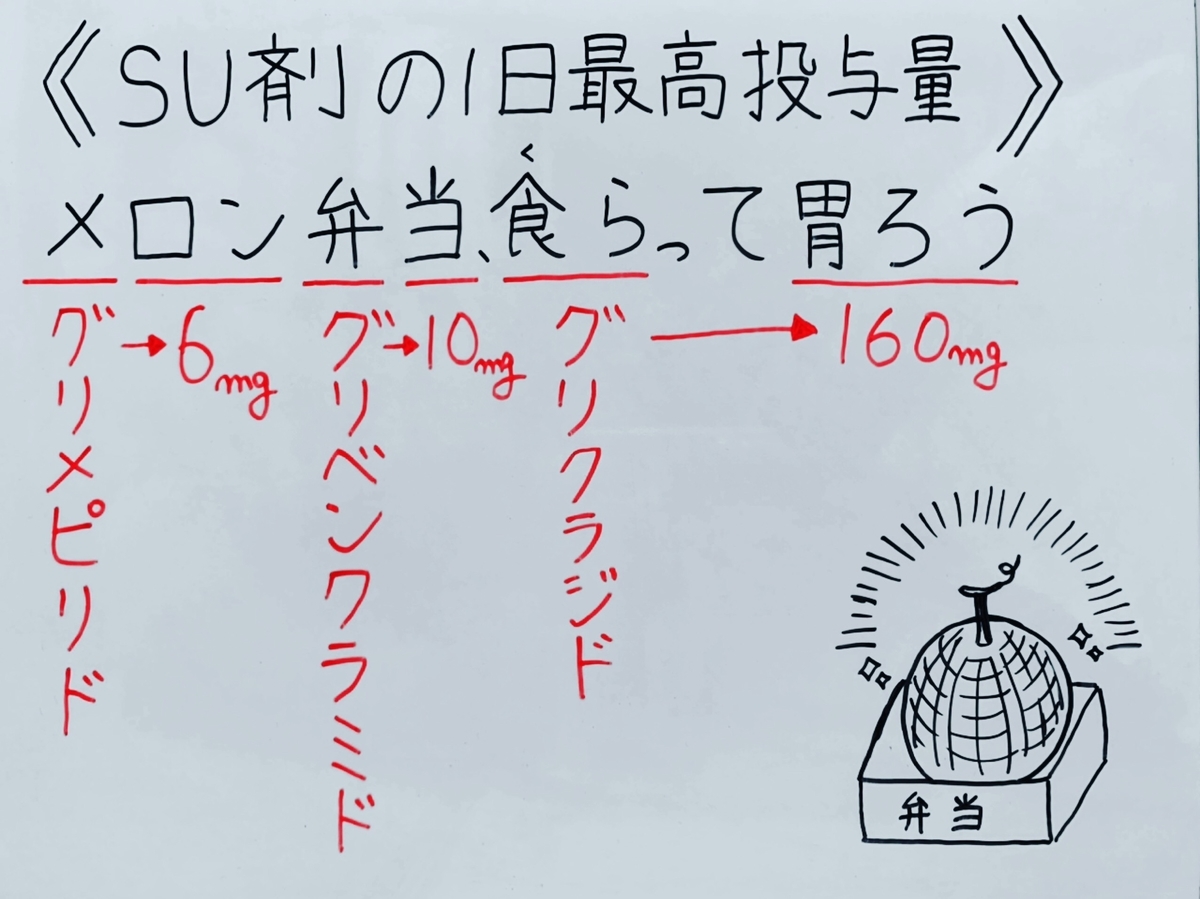 《SU剤の1日最高投与量》
く
メロン弁当、食らって胃ろう
グリメピリド→6mg
グリベンクラミド→10mg
グリクラジド→160mg
弁当